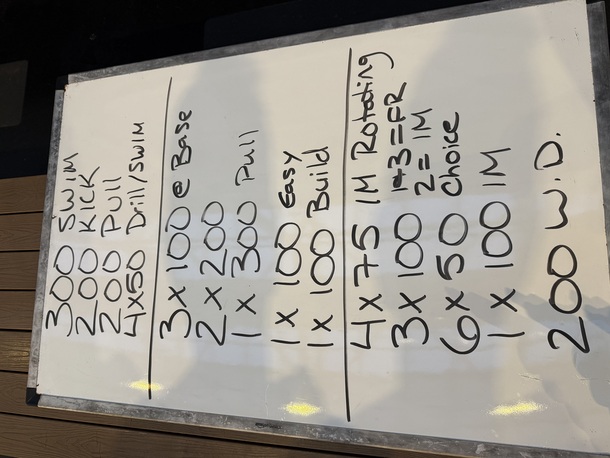 300 SWIM
200 KICK
200 PULL
4x50 Drill/SWIM
3 x 100 @ Base
2 x 200
1 x 300 Pull
1 x 100 Easy
1 x 100 Build
4 x 75 IM Rotating
3 x 100 1+3=FR
2= IM
6 x 50 Choice
1 x 100 IM
200 W.D.